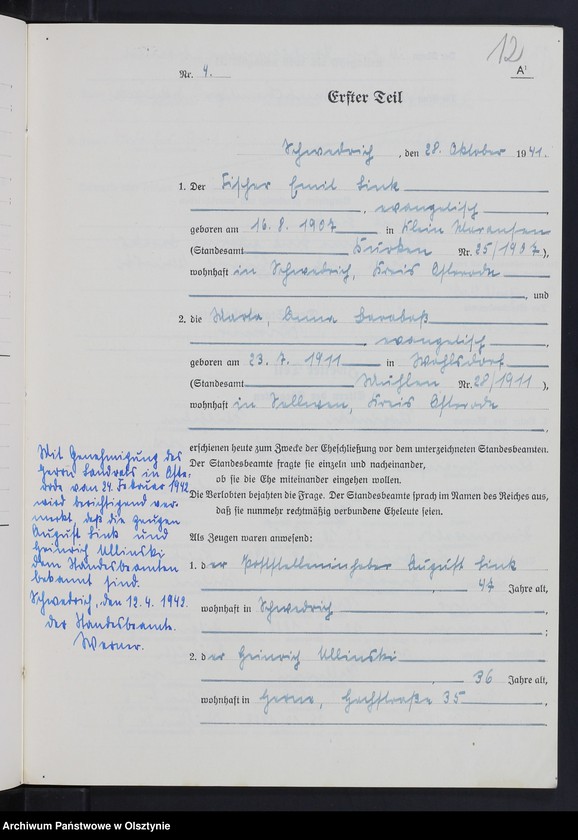 12
A¹
Nr. 4.
Erster Teil
Schwedrich, den 28. Oktober 1941.
1. Der Fischer Emil Link
, evangelisch,
geboren am 16. 8. 1907 in Klein Maransen
(Standesamt Kurken Nr. 25/1907),
wohnhaft in Schwedrich, Kreis Osterode
, und
2. die Marta, Anna Barabaß
, evangelisch,
geboren am 23. 7. 1911 in Wahlsdorf
(Standesamt Mühlen Nr. 28/1911),
wohnhaft in Sellwen, Kreis Osterode
.
erschienen heute zum Zwecke der Eheschließung vor dem unterzeichneten Standesbeamten.
Der Standesbeamte fragte sie einzeln und nacheinander,
ob sie die Ehe miteinander eingehen wollen.
Die Verlobten bejahten die Frage. Der Standesbeamte sprach im Namen des Reiches aus,
daß sie nunmehr rechtmäßig verbundene Eheleute seien.
Als Zeugen waren anwesend:
1. der Poststelleninhaber August Link
, 47 Jahre alt,
wohnhaft in Schwedrich,
;
2. der Heinrich Ullinski
, 36 Jahre alt,
wohnhaft in Herne, Hochstraße 35,
.
Mit Genehmigung des
Herrn Landrats in Oste-
rode vom 24. Februar 1942
wird berichtigend ver-
merkt, daß die Zeugen
August Link und
Heinrich Ullinski
dem Standesbeamten
bekannt sind.
Schwedrich, den 12. 4. 1942.
Der Standesbeamte.
Werner.
Archiwum Państwowe w Olsztynie